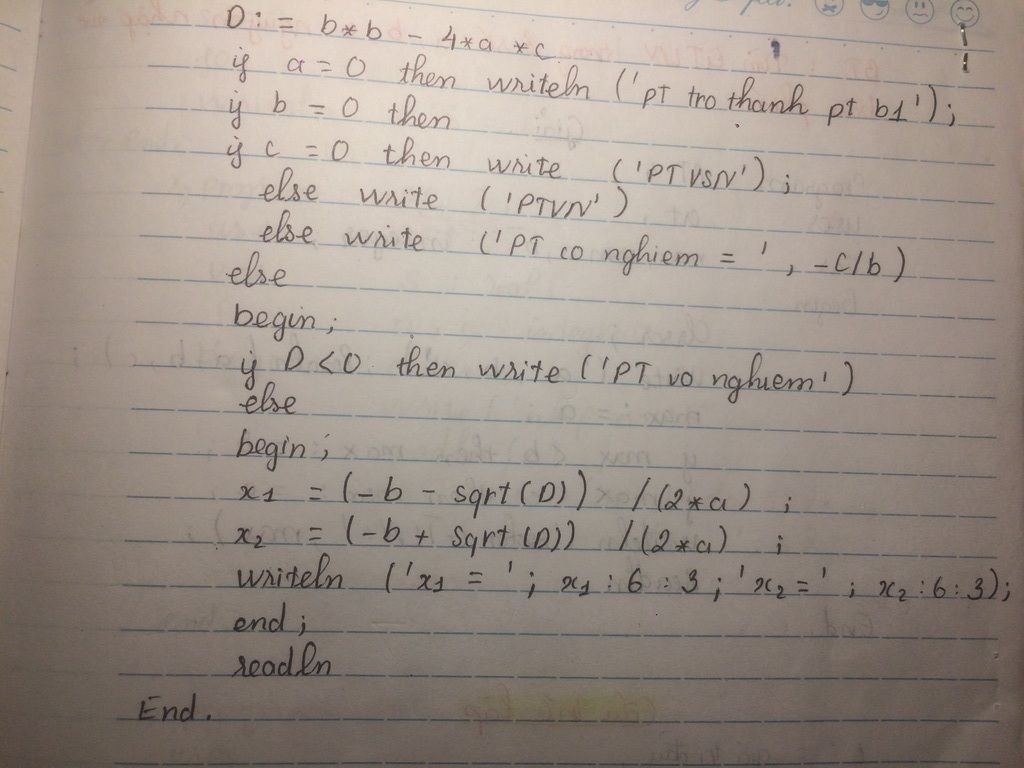 D := b*b - 4*a*c
if a = 0 then writeln ('pt tro thanh pt b1');
if b = 0 then
if c = 0 then write ('PTVSN');
else write ('PTVN')
else write ('PT co nghiem = ', -c/b)
else
begin;
if D <0 then write ('PT vo nghiem')
else
begin;
x1 = (-b - sqrt(D)) /(2*a) ;
x2 = (-b + sqrt(D)) /(2*a) ;
writeln ('x1 = '; x1:6:3; 'x2 =' ; x2:6:3);
end;
readln
End.